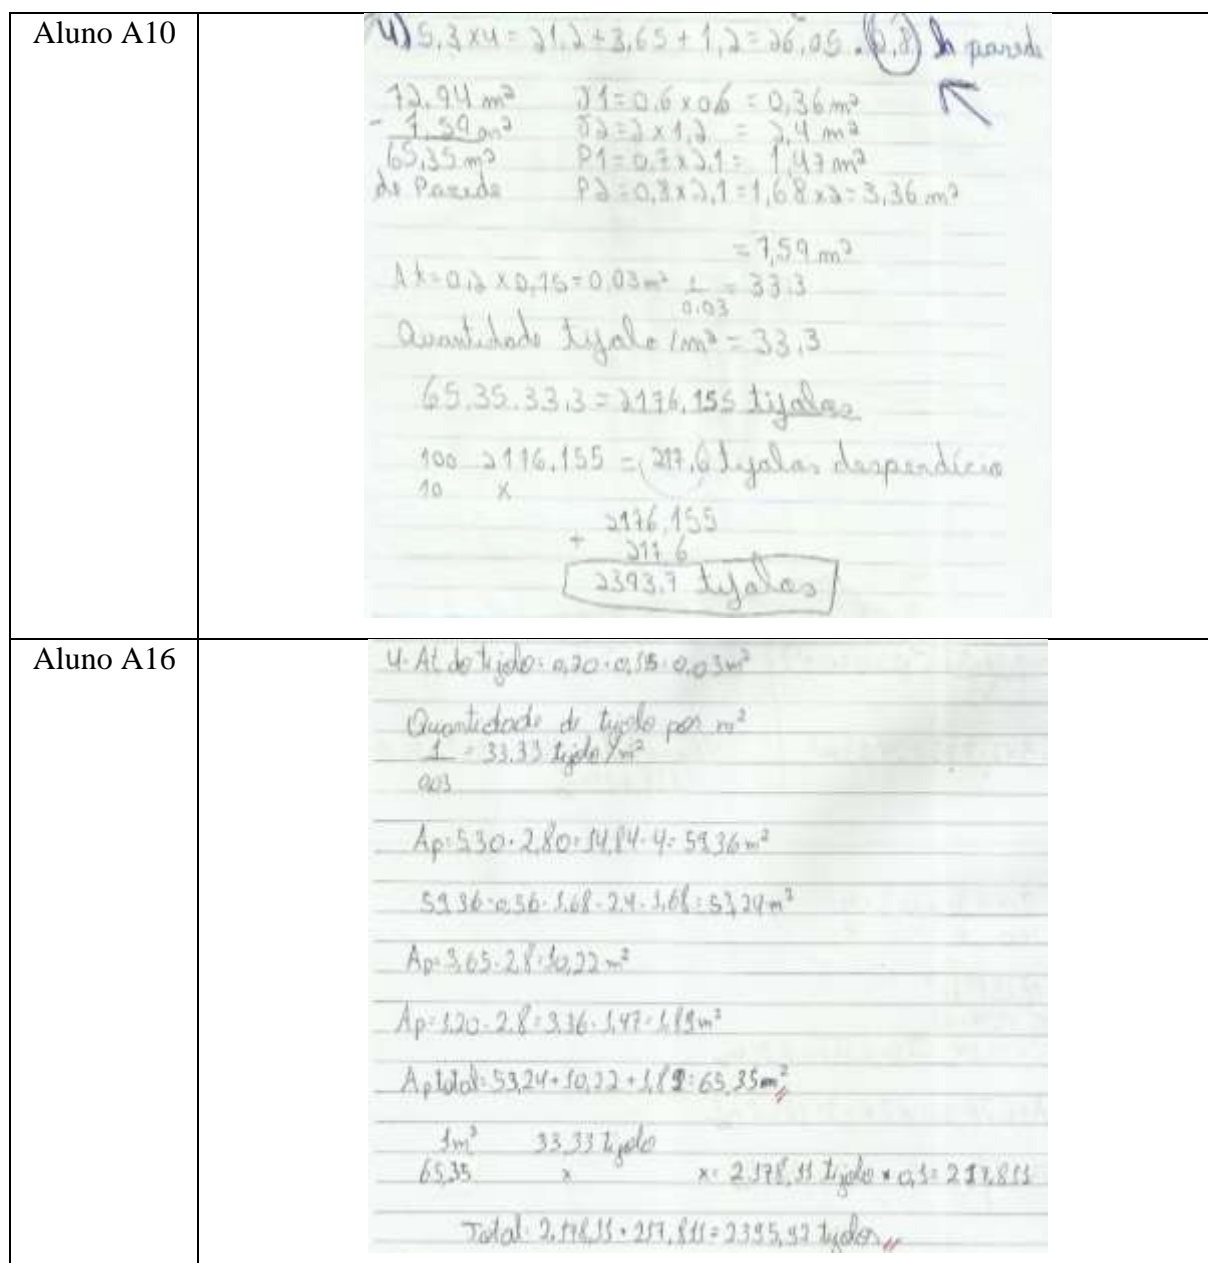 Aluno A10
4) 5,3 x 4 = 21,2 + 3,65 + 1,2 = 26,05 . 2,8 h parede
72,94 m² J1 = 0,6 x 0,6 = 0,36 m²
- 7,59 m² J2 = 2 x 1,2 = 2,4 m²
65,35 m² P1 = 0,7 x 2,1 = 1,47 m²
de Parede P2 = 0,8 x 2,1 = 1,68 x 2 = 3,36 m²
= 7,59 m²
At = 0,2 x 0,15 = 0,03 m² 1/0,03 = 33,3
Quantidade tijolo /m² = 33,3
65,35 . 33,3 = 2176,155 tijolos
100 2176,155 = 217,6 tijolos desperdício
10 x
2176,155
+ 217 6
2393,7 tijolos
Aluno A16
4- At do tijolo: 0,20 . 0,15 = 0,03 m²
Quantidade de tijolo por m²
1 = 33,33 tijolo/m²
0,03
Ap = 5,30 . 2,80 = 14,84 . 4 = 59,36 m²
59,36 - 0,36 - 1,68 - 2,4 - 1,68 = 53,24 m²
Ap = 3,65 . 2,8 = 10,22 m²
Ap = 1,20 . 2,8 = 3,36 - 1,47 = 1,89 m²
Ap total = 53,24 + 10,22 + 1,89 = 65,35 m²
1m² 33,33 tijolo
65,35 x x = 2.178,11 tijolo * 0,1 = 217,811
Total: 2.178,11 + 217,811 = 2395,92 tijolos